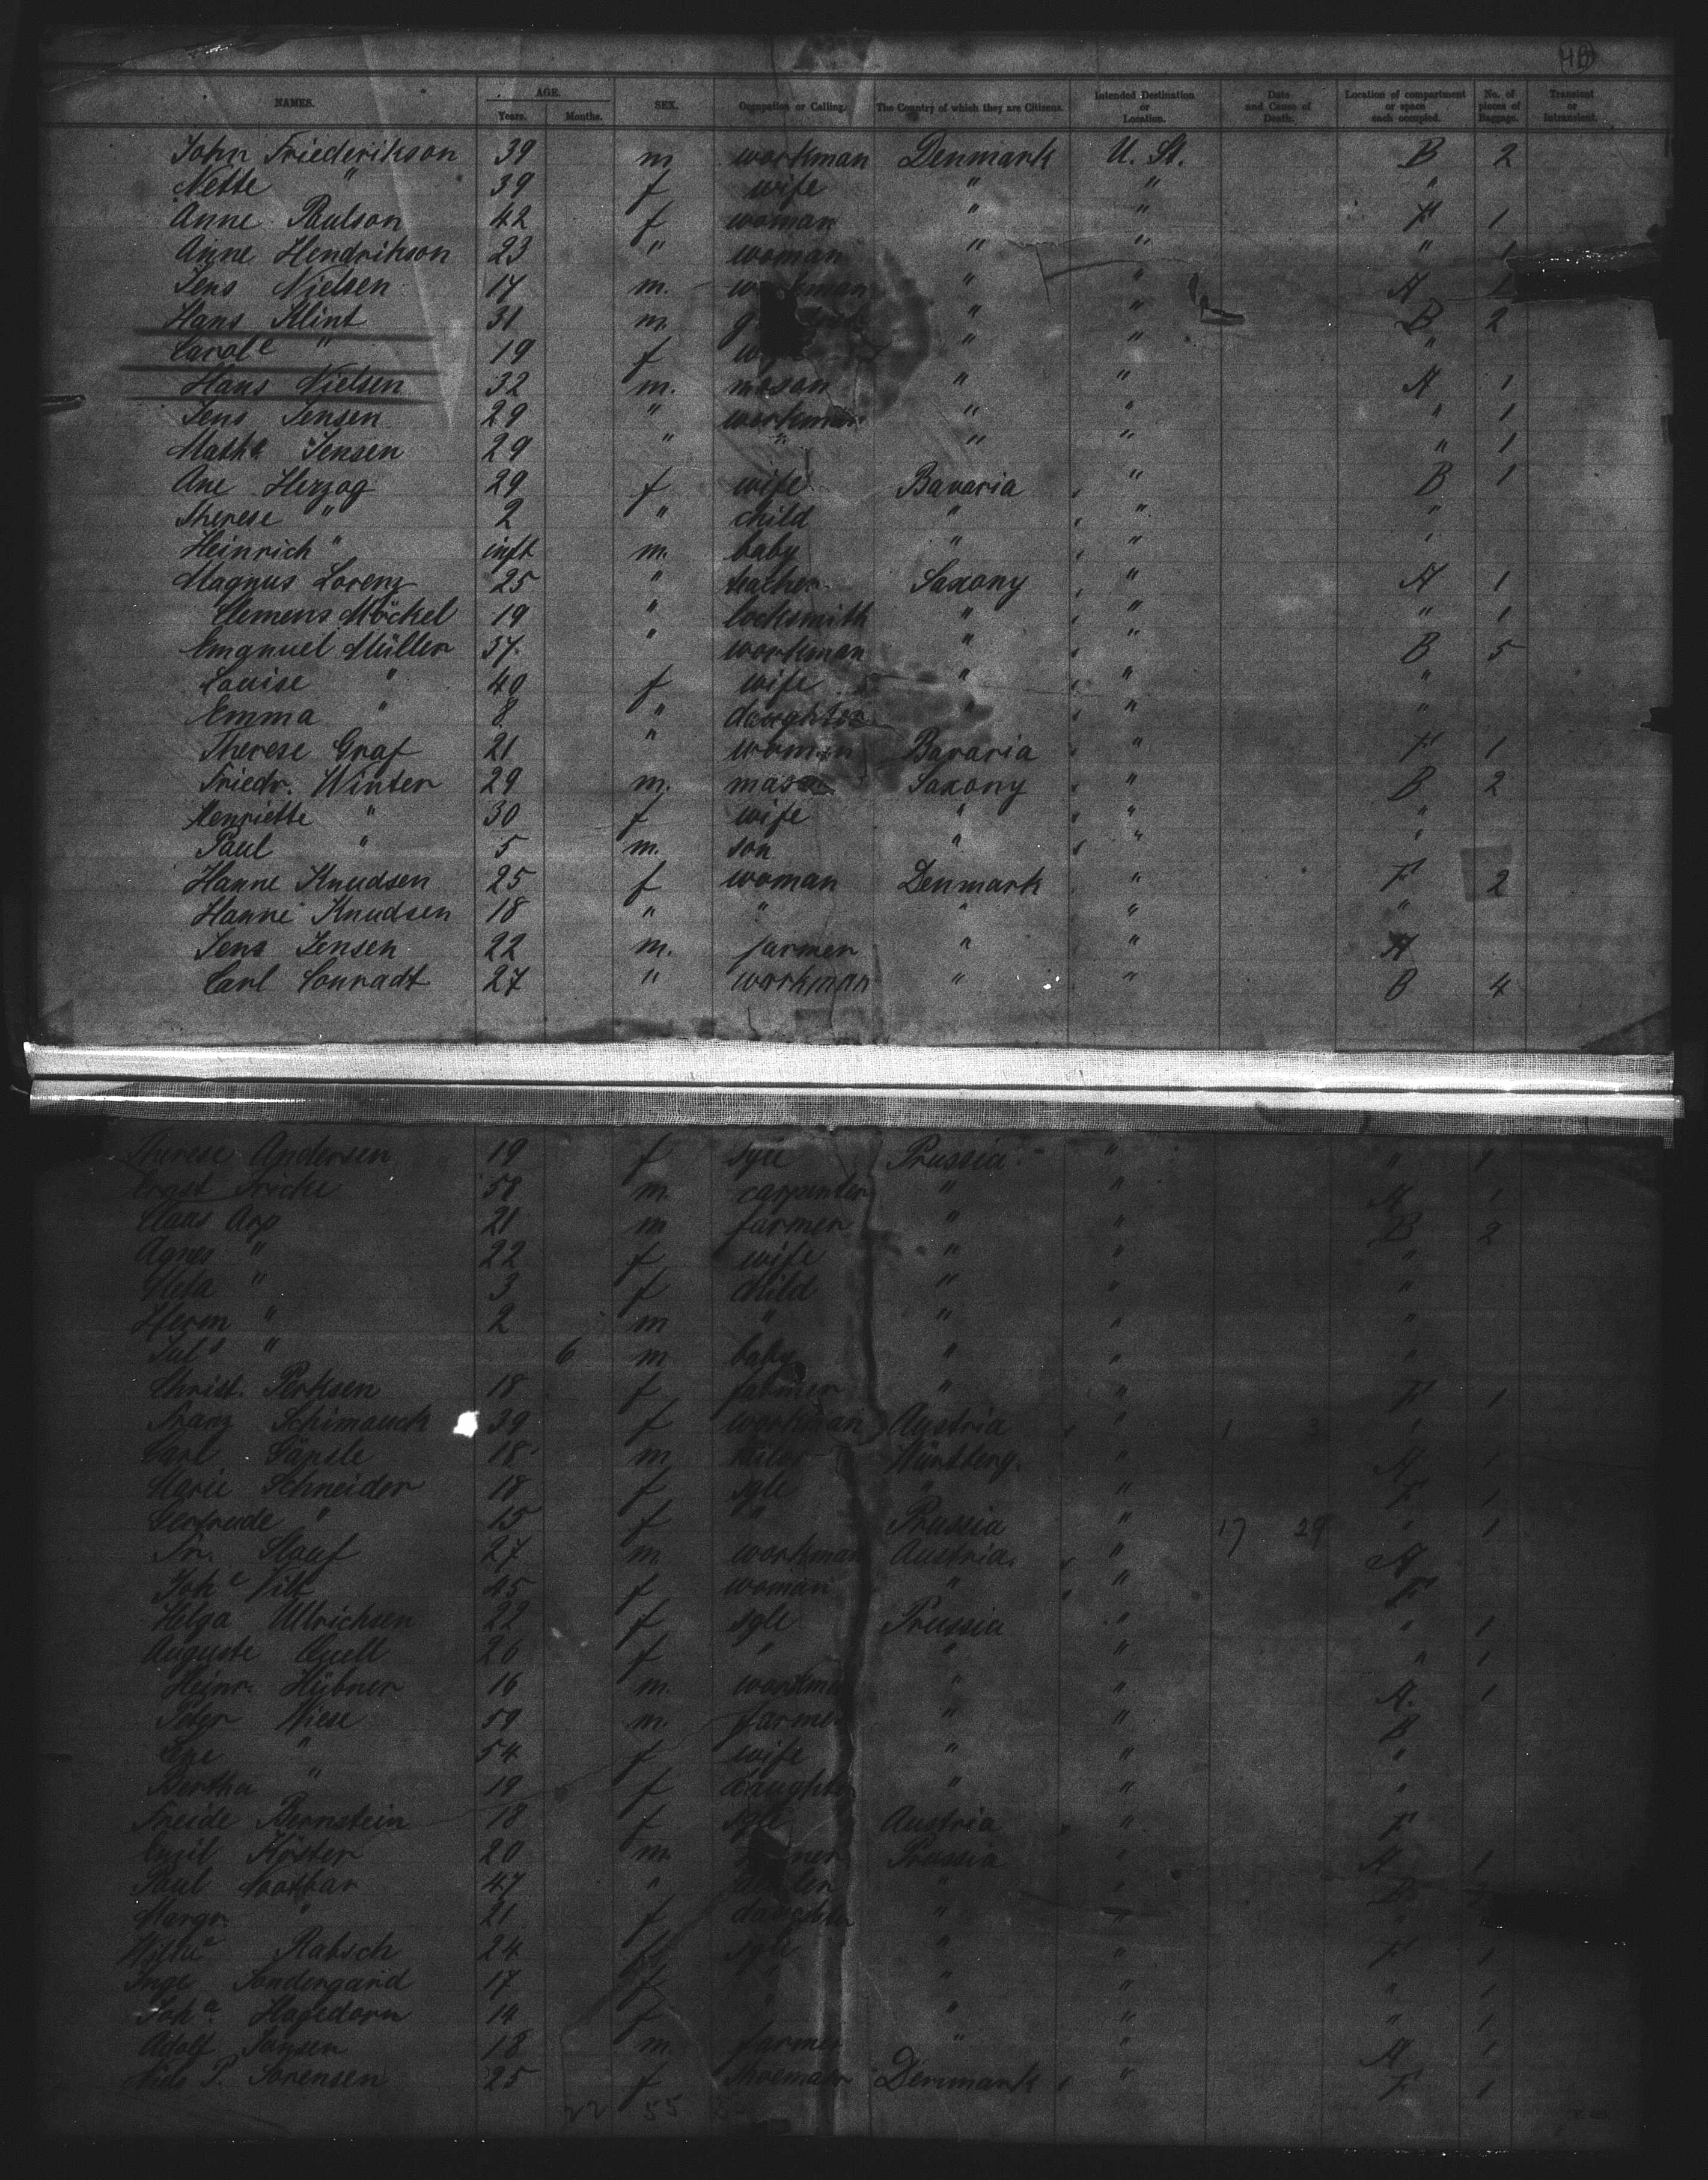 4B
NAMES. AGE. Years. Months. SEX. Occupation or Calling. The Country of which they are Citizens. Intended Destination or Location. Date and Cause of Death. Location of compartment or space each occupied. No. of pieces of Baggage. Transient or Intransient.
John Friederikson 39 m workman Denmark U. St. B 2
Nette " 39 f wife " " "
Anne Paulson 42 f woman " F 1
Anne Hendrikson 23 " woman " " " 1
Jens Nielsen 17 m. workman " " A
Hans Klint 31 m. " " B 2
Carole " 19 f " " "
Hans Nielsen 32 m. mason " " A 1
Jens Jensen 29 " workman " " " 1
Mathe Jensen 29 " " " " " 1
Ane Herzog 29 f wife Bavaria " B 1
Therese " 2 " child " " "
Heinrich " inft m. baby " " "
Magnus Lorenz 25 " teacher Saxony " A 1
Clemens Möckel 19 " locksmith " " " 1
Emanuel Müller 37. " workman " " B 5
Louise " 40 f wife " " "
Emma " 8 " daughter " " "
Therese Graf 21 " woman Bavaria " F 1
Friedr. Winter 29 m. mason Saxony " B 2
Henriette " 30 f wife " " "
Paul " 5 m. son " " "
Hanne Knudsen 25 f woman Denmark " F 2
Hanne Knudsen 18 " " " " "
Jens Jensen 22 m. farmer " " A
Carl Conradt 27 " workman " " B 4
Therese Andersen 19 f sgle Prussia " " 1
Ernst Fricke 58 m. carpenter " " A 1
Claus Arp 21 m farmer " " B 2
Agnes " 22 f wife " " "
Meta " 3 f child " " "
Herm " 2 m " " " "
Juls " 6 m baby " " "
Christ. Perksen 18 f farmer " " F 1
Franz Schimauck 39 f workman Austria "
Carl 18 m tailor Württberg. " A 1
Marie Schneider 18 f sgle " " F 1
Gertrude " 15 f " Prussia " 17 29 " 1
Fr. 27 m. workman Austria. " A
Johe 45 f woman " " F
Helga Ullrichsen 22 f sgle Prussia " " 1
Auguste Quell 26 f " " " " 1
Heinr. Hübner 16 m. workman " " A. 1
Peter Wiese 59 m. farmer " " B
" 54 f wife " " "
Bertha " 19 f daughter " " "
Freide Bernstein 18 f sgle Austria " F
Emil Köster 20 m. Prussia " A 1
Paul 47 " " " B
Margr. " 21 f daughter " " "
Wilhe Rabsch 24 f sgle " " F 1
Inge Sondergaard 17 f " " " 1
Joha. Hagedorn 14 f " " " " 1
Adolf Jansen 18 m. farmer " " A 1
Niels P. Sorensen 25 f Denmark " F 1
22 55